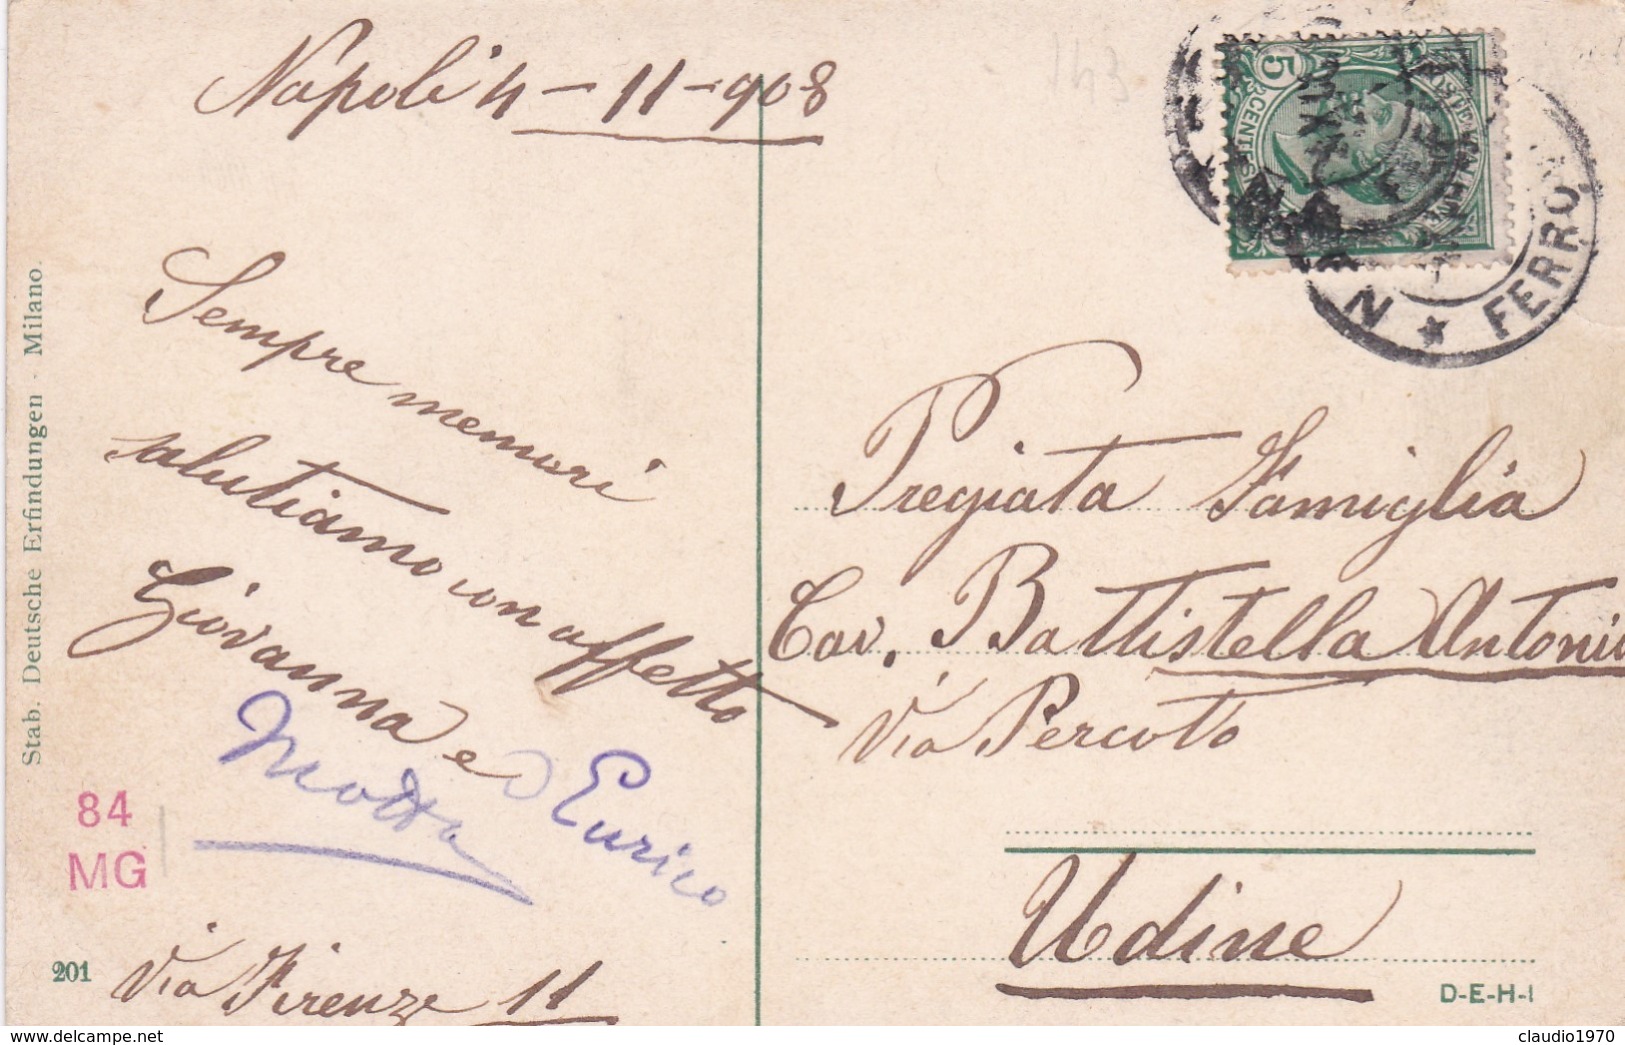 Napoli 4-11-908
143
Sempre memori
salutiamo con affetto
Giovanna e
Motta Enrico
Via Firenze 11
84
MG
201
Stab. Deutsche Erfindungen - Milano.
5
CENT
N ★ FERRO.
Pregiata Famiglia
Cav. Battistella Antonio
Via Percoto
Udine
D-E-H-I
delcampe.net
claudio1970